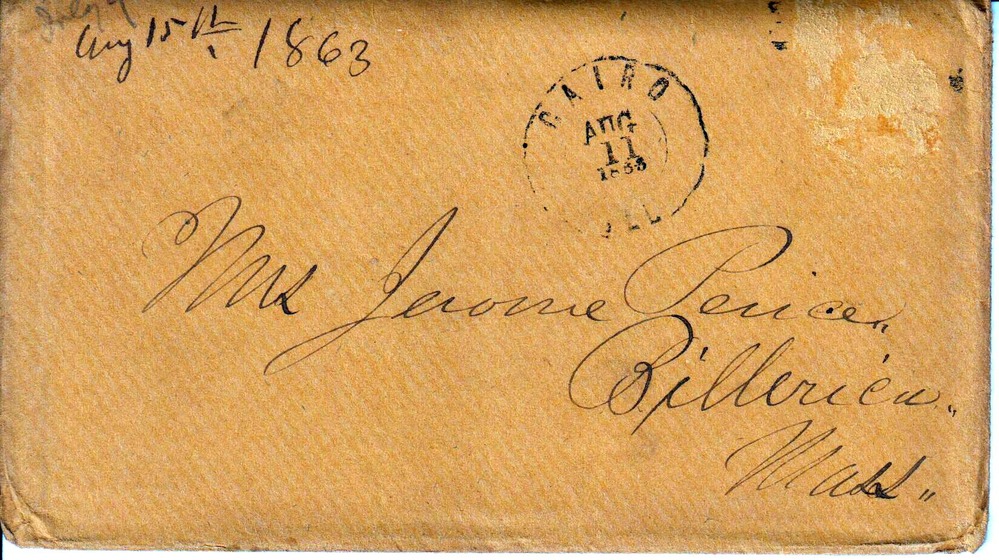 Aug 15th 1863
CAIRO
AUG
11
1863
ILL
Mrs Jerome Peirce
Billerica
Mass